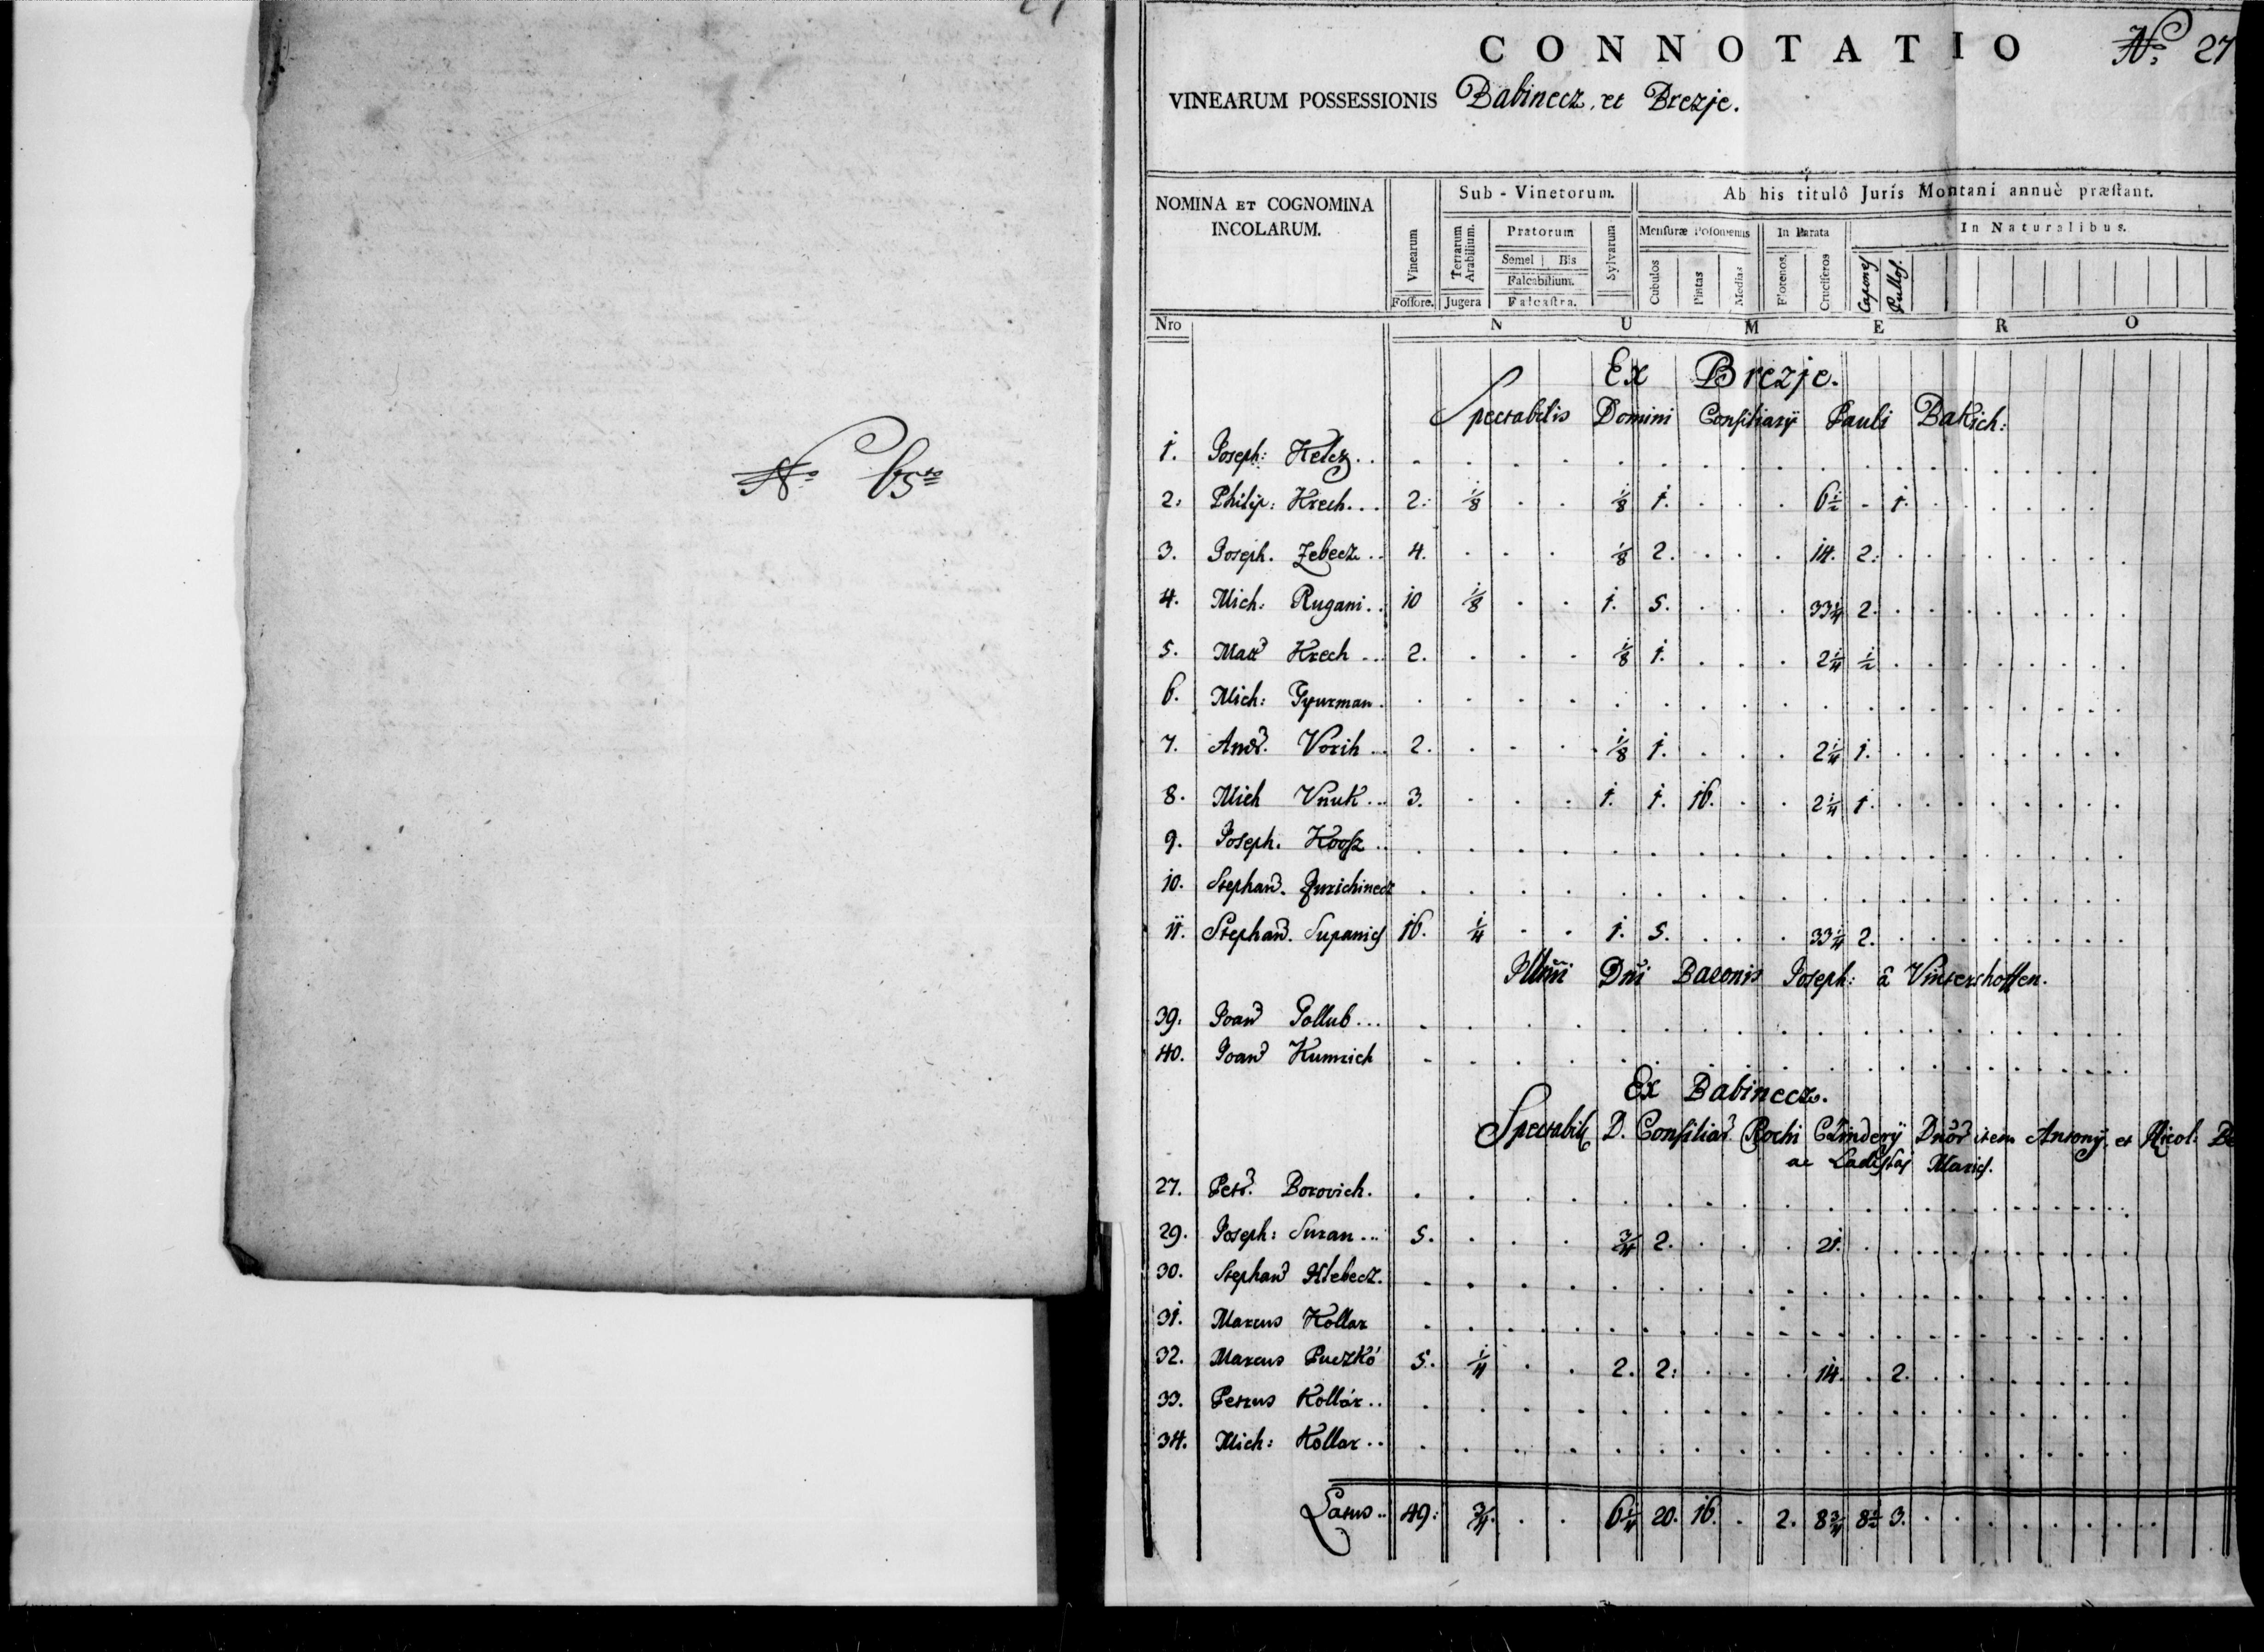 CONNOTATIO
No 27
VINEARUM POSSESSIONIS Babinecz, et Brezje.
NOMINA ET COGNOMINA INCOLARUM.
Vinearum
Fossore.
Sub-Vinetorum.
Terrarum Arabilium.
Jugera
Pratorum
Semel | Bis
Falcabilium.
Falcastra.
Sylvarum
Ab his titulô Juris Montani annuè præstant.
Mensuræ Posoniensis
Cubulos
Pintas
Medias
In Parata
Florenos.
Cruciferos
In Naturalibus.
Capones
Pullos.
Nro
N U M E R O
Ex Brezje.
Spectabilis Domini Consiliarÿ Pauli Bakich:
1. Joseph: Kelez . .
2. Philip: Krech . . . 2. 1/8 . . 1/8 1. . . . 6 1/2 . 1.
3. Joseph. Zebecz . . 4. . . . 1/8 2. . . . 14. 2.
4. Mich: Rugani . . 10 1/8 . . 1. 5. . . . 33 1/4 2.
5. Krech . . . 2. . . . 1/8 1. . . . 2 1/4 1/2
6. Mich: Gyurman .
7. Andr. Vorih . . . 2. . . . 1/8 1. . . . 2 1/4 1.
8. Mich Vnuk . . . 3. . . . 1. 1. 16. . . 2 1/4 1.
9. Joseph. Koosz . .
10. Stephan. Jurichinecz
11. Stephan. Supanich 16. 1/4 . . 1. 5. . . . 33 1/4 2.
Illmi Dni Baronis Joseph: â Vintershoffen.
39. Joan Gollub . . .
40. Joan Kumrich
Ex Babinecz.
Spectabil D. Consiliar. Rochi Dnor item Antonÿ et Nicol:
ac Ladislai
27. Petr. Borovich.
29. Joseph: Suran . . . 5. . . . 3/4 2. . . . 21.
30. Stephan Hlebecz.
31. Marcus Kollar
32. Marcus Puczkó 5. 1/4 . . 2. 2. . . . 14. . 2.
33. Petrus Kollár . .
34. Mich: Kollar . .
Latus . . 49. 3/4 . . 6 1/4 20. 16. . 2. 8 3/4 8 1/2 3.
No